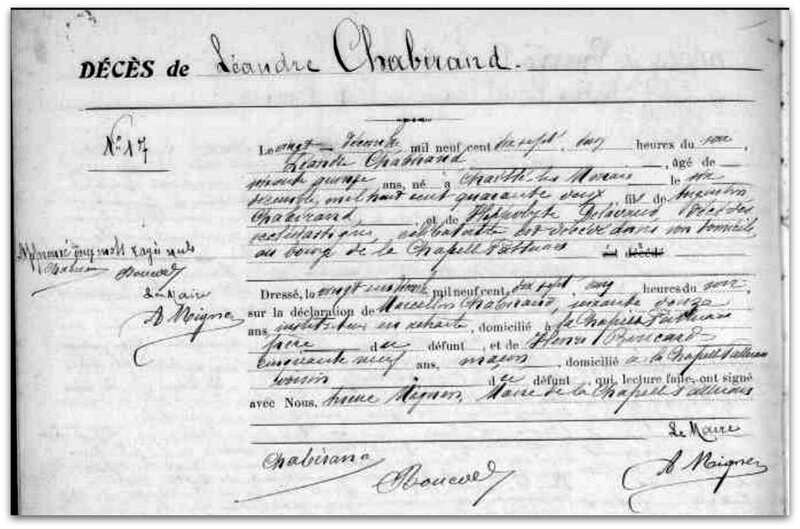 DÉCÈS de Léandre Chabirand.
N° 17
Le vingt décembre mil neuf cent dix sept, onze heures du soir,
Léandre Chabirand, âgé de
ans, né à le
décembre mil huit cent quarante deux fils de
Chabirand, et de Hippolyte
ecclésiastique célibataire est décédé dans son domicile,
au bourg de la Chapelle Palluau est décédé
Approuvé deux mots rayés nuls
Chabirand Boucard
Le Maire
A Mignen
Dressé, le vingt un décembre mil neuf cent dix sept heures du soir,
sur la déclaration de Marcellin Chabirand, soixante douze
ans instituteur en retraite, domicilié à la Chapelle Palluau
frère du défunt, et de Henri Boucard
cinquante neuf ans, maçon domicilié à la Chapelle Palluau
voisin du défunt, qui, lecture faite, ont signé
avec Nous, Mignen, Maire de la Chapelle Palluau
Le Maire
Chabirand
Boucard
A Mignen